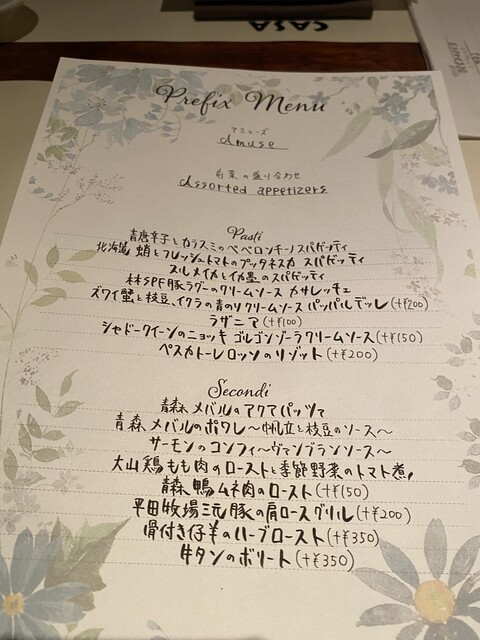 CASA
Prefix Menu
アミューズ
Amuse
前菜の盛り合わせ
Assorted appetizers
Pasti
青唐辛子とカラスミのペペロンチーノスパゲッティ
北海道 蛸とフレッシュトマトのプッタネスカ スパゲッティ
スルメイカとイカ墨のスパゲッティ
林SPF豚ラグーのクリームソース カサレッチェ
ズワイ蟹と枝豆、イクラの青のりクリームソース パッパルデッレ(+¥200)
ラザニア(+¥100)
シャドークイーンのニョッキ ゴルゴンゾーラクリームソース(+¥150)
ペスカトーレロッソのリゾット(+¥200)
Secondi
青森メバルのアクアパッツァ
青森メバルのポワレ〜帆立と枝豆のソース〜
サーモンのコンフィ〜ヴァンブランソース〜
大山鶏もも肉のローストと季節野菜のトマト煮
青森鴨ムネ肉のロースト(+¥150)
平田牧場三元豚の肩ロースグリル(+¥200)
骨付き仔羊のハーブロースト(+¥350)
牛タンのボリート(+¥350)